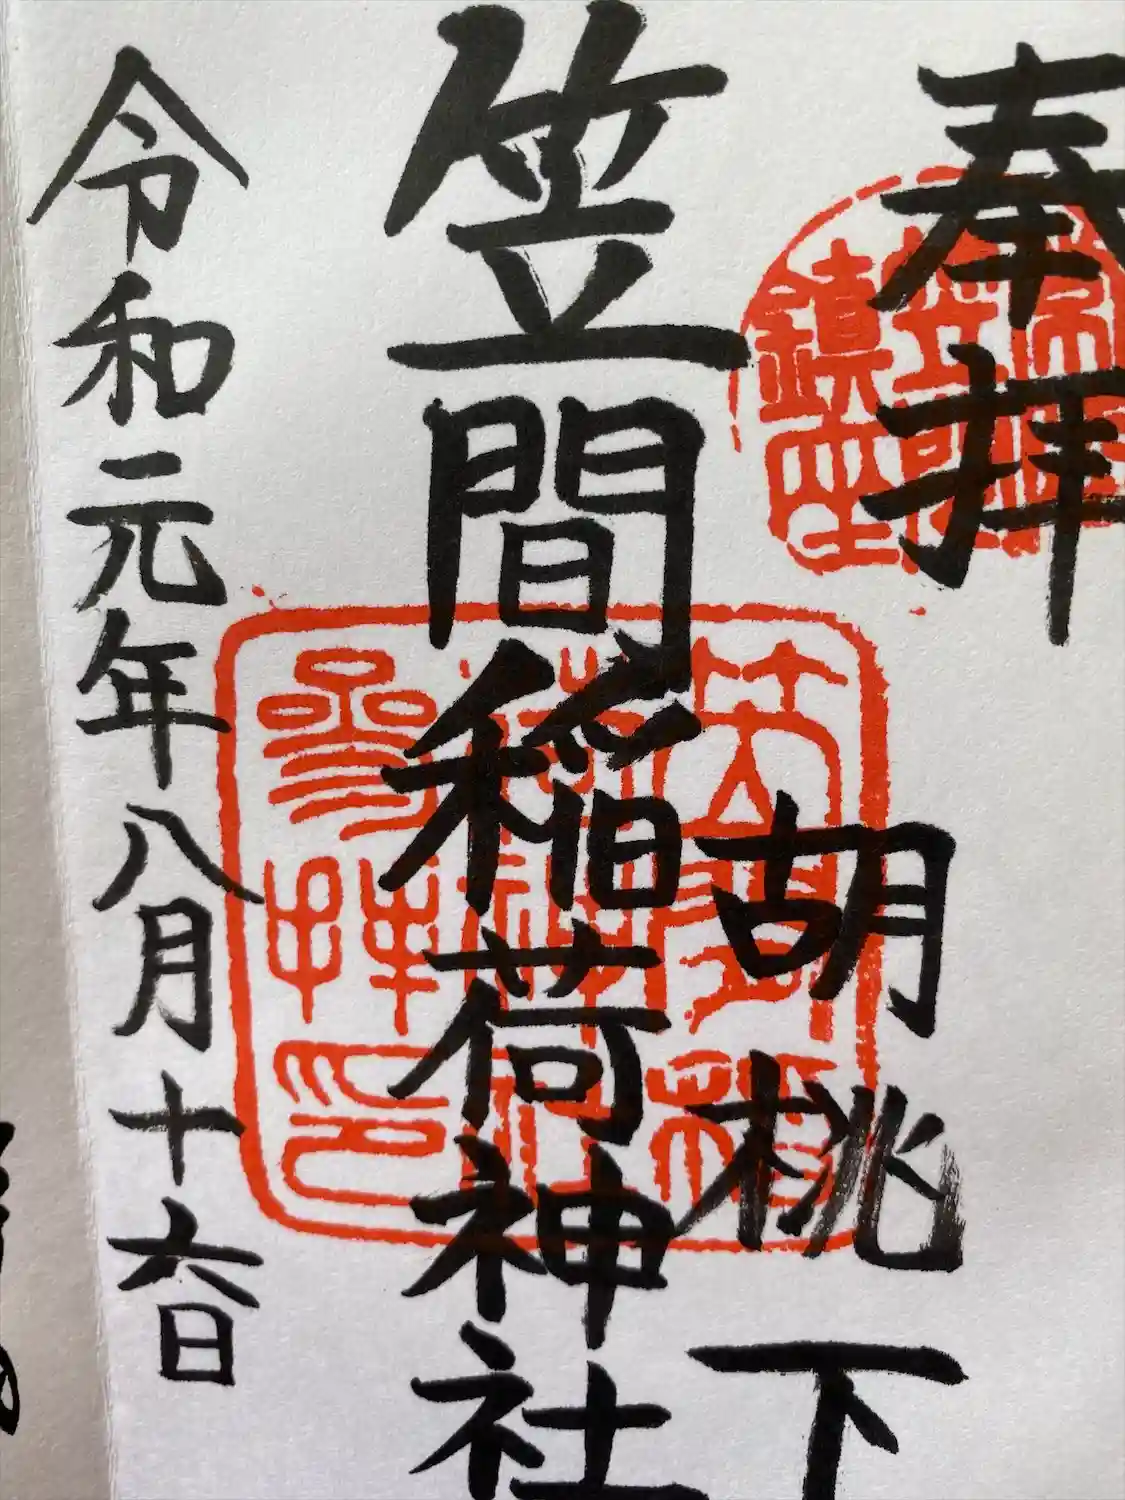 奉拝
胡桃下
笠間稲荷神社
令和元年八月十六日